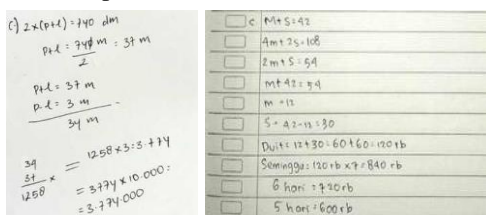 c) 2x(p+l) = 740 dm
p+l = 740 m : 37 m
2
p+l = 37 m
p-l = 3 m
34 m
34
37 x
1258
= 1258 x 3 : 3.774
= 3774 x 10.000 :
= 3.774.000
c M+S = 42
4m + 2s = 108
2m + S = 54
m + 42 = 54
m = 12
S = 42-12 = 30
Duit = 12+30 = 60+60 = 120rb
Seminggu : 120rb x 7 = 840 rb
6 hari = 720rb
5 hari = 600rb